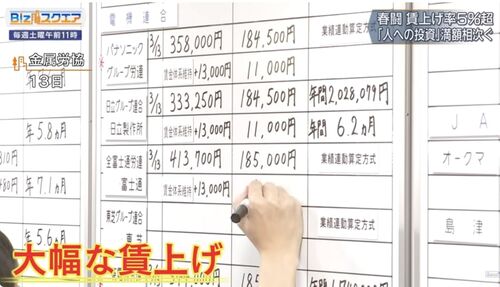 Biz スクエア
毎週土曜午前11時
春闘 賃上げ率5%超
「人への投資」満額相次ぐ
金属労協
13日
電機連合
パナソニック
グループ労連
3/13
358,000円
184,500円
業績連動算定方式
賃金体系維持+13,000円
11,000円
日立グループ連合
日立製作所
3/13
333,250円
184,500円
年間2,028,079円
賃金体系維持+13,000円
11,000円
年間 6.2ヵ月
全富士通労連
富士通
3/13
413,700円
185,000円
業績連動算定方式
賃金体系維持+13,000円
東芝グループ連合
業績連動算定方式
年 5.8ヵ月
310円
480円
年 7.1ヵ月
年 5.6ヵ月
JA
オークマ
島津
大幅な賃上げ